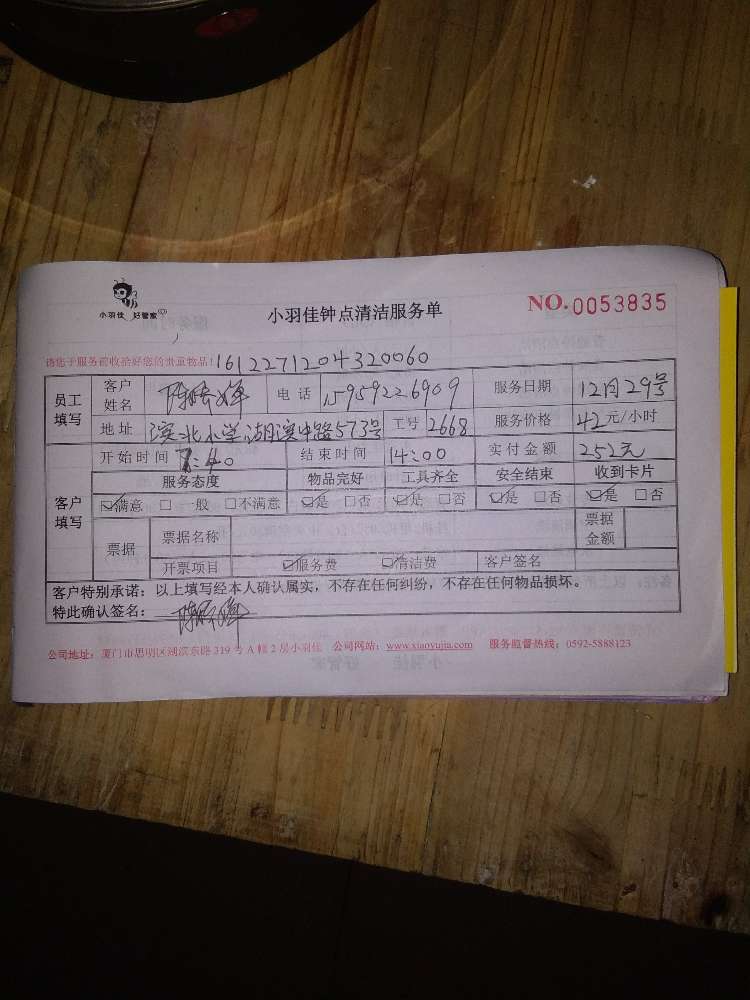 小羽佳 好管家
小羽佳钟点清洁服务单
NO.0053835
请您于服务前收拾好您的贵重物品!1612271204320060
员工填写 客户姓名 电话 15959226909 服务日期 12月29号
地址 滨北小学湖滨中路573号 工号 2668 服务价格 42元/小时
客户填写 开始时间 结束时间 14:00 实付金额 252元
服务态度 物品完好 工具齐全 安全结束 收到卡片
☑满意 □一般 □不满意 ☑是 □否 ☑是 □否 ☑是 □否 ☑是 □否
票据 票据名称 票据金额
开票项目 ☑服务费 ☑清洁费 客户签名
客户特别承诺:以上填写经本人确认属实,不存在任何纠纷,不存在任何物品损坏。
特此确认签名:
公司地址:厦门市思明区湖滨东路319号A幢2层小羽佳 公司网站:www.xiaoyujia.com 服务监督热线:0592-5888123